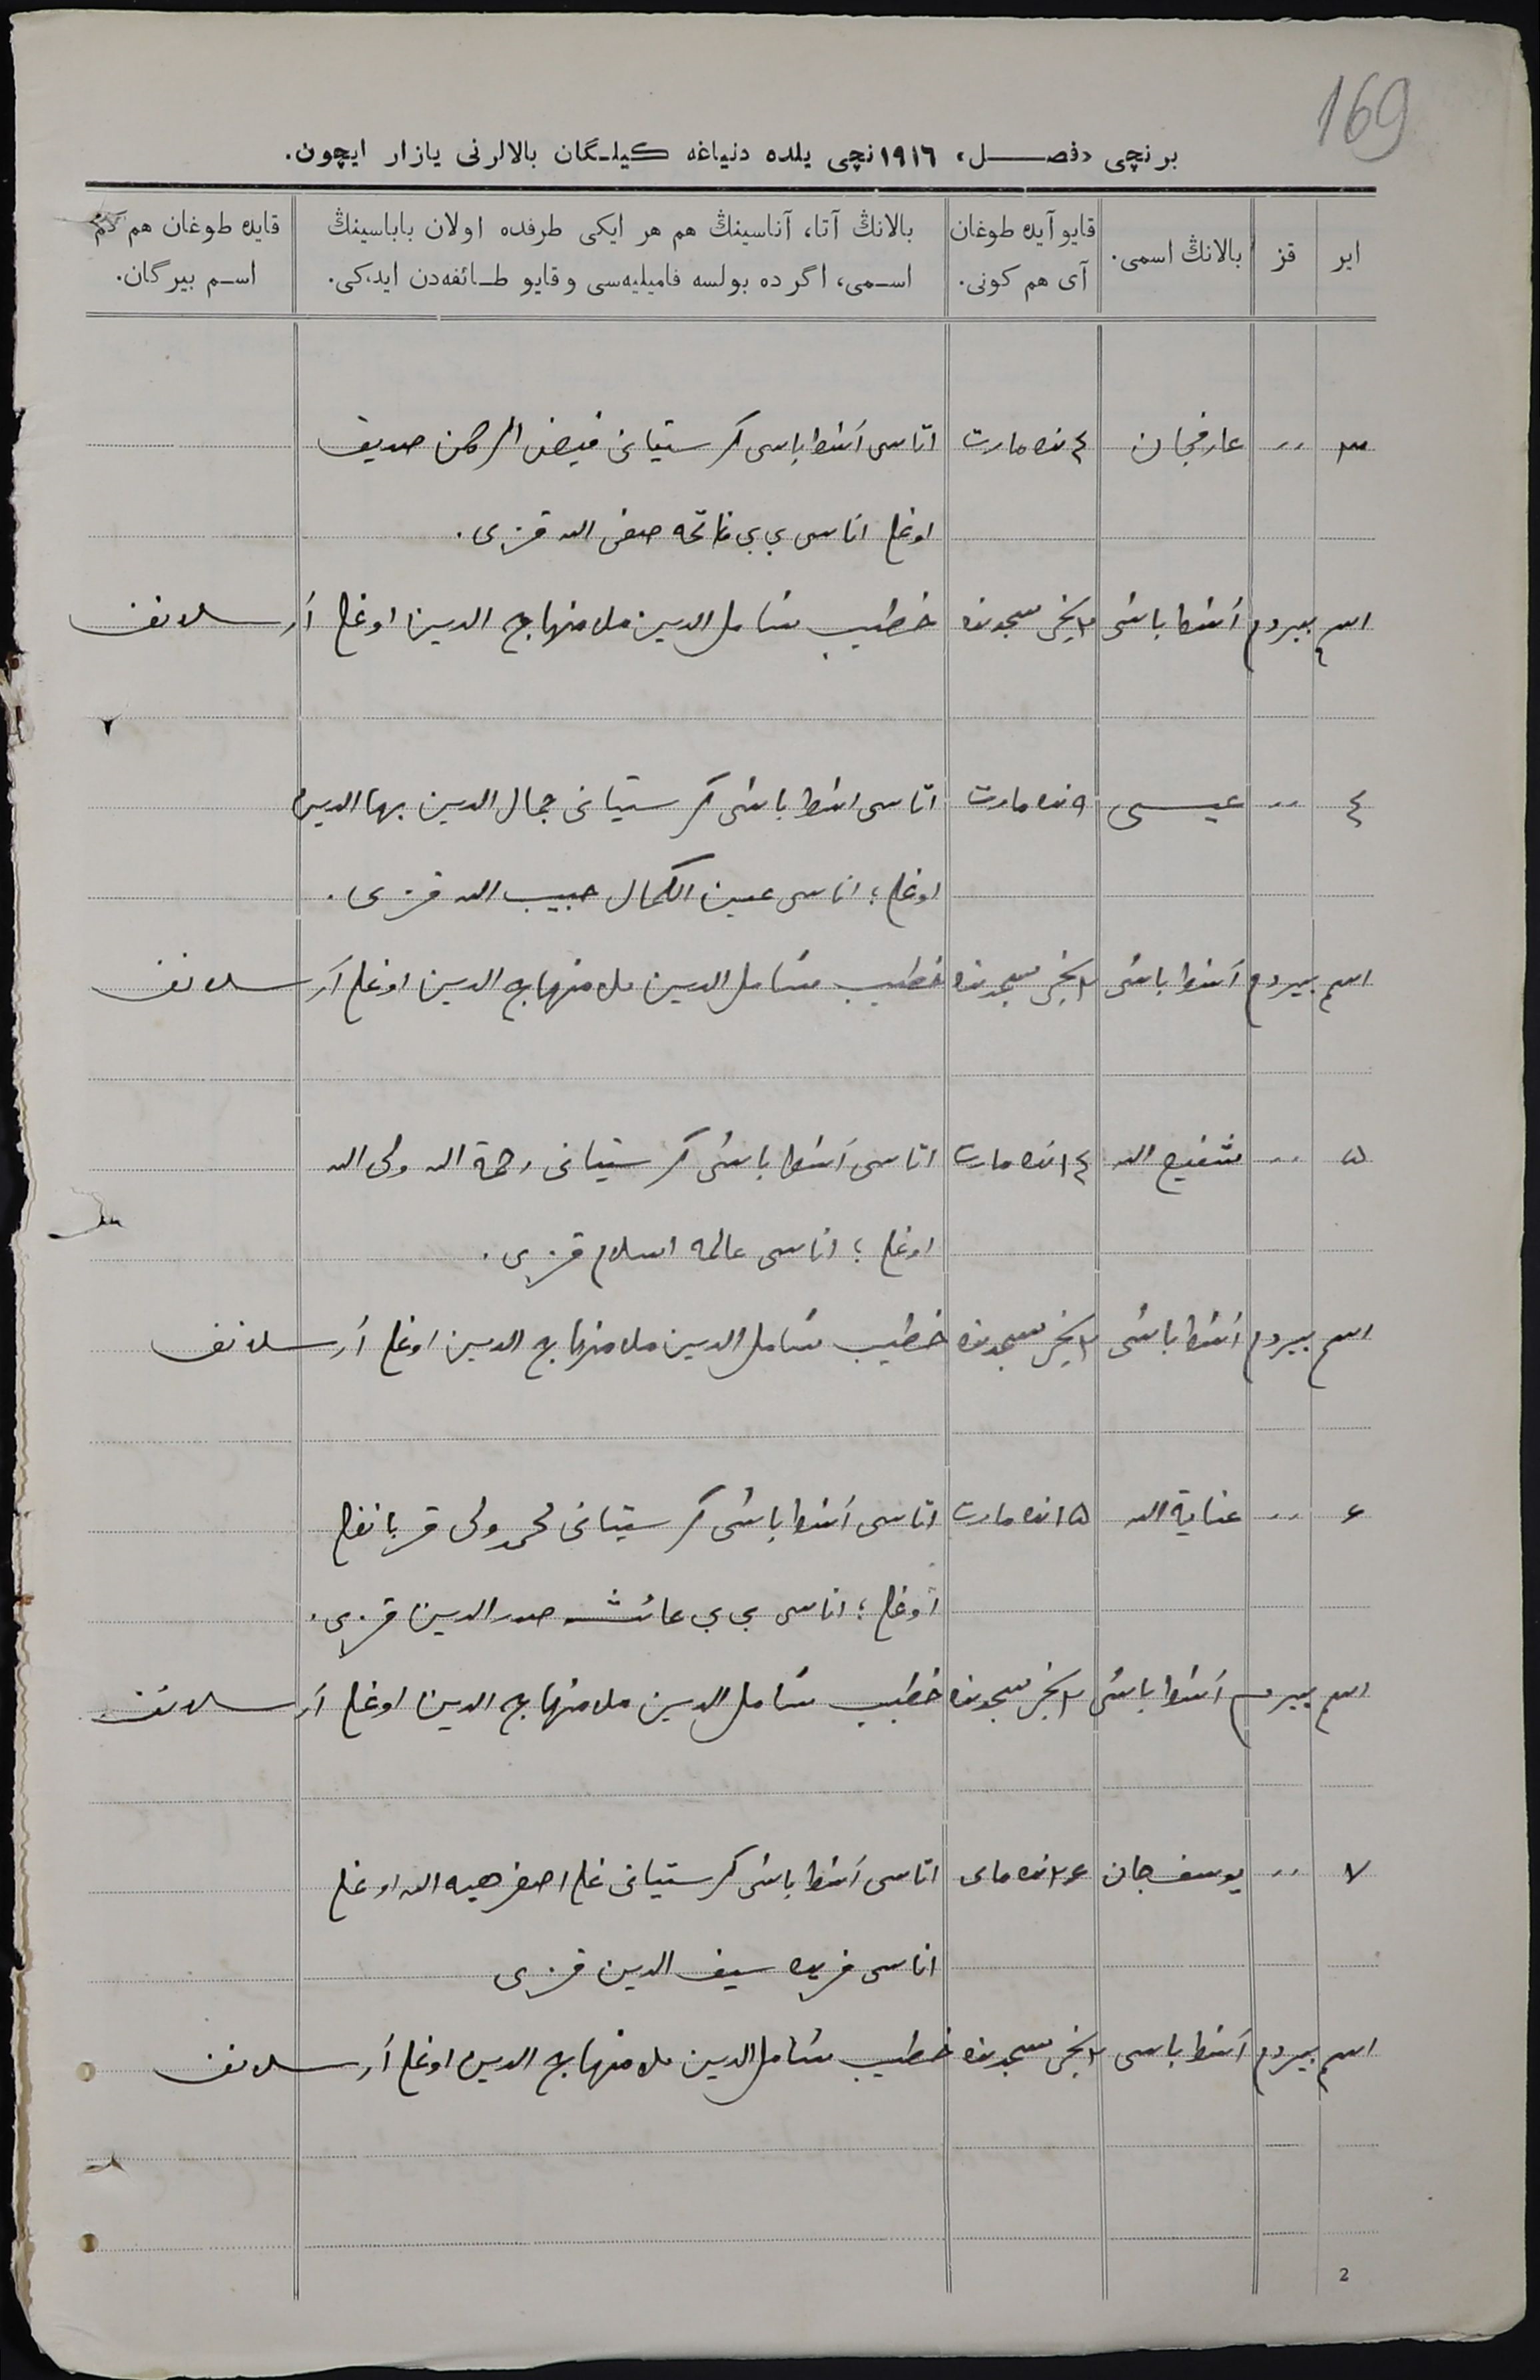 169
برنچی «فصل» ١٩١٦ نچی يلده دنياغه كيلگان بالالرنی يازار ايچون.
اير
قز
بالانڭ اسمی.
قايو آيده طوغان
آی هم كونی.
بالانڭ آتا، آناسينڭ هم هر ايكی طرفده اولان باباسينڭ
اسمی، اگر ده بولسه فاميليه‌سی و قايو طائفه‌دن ايدكی.
قايده طوغان هم كم
اسم بيرگان.
٣ ״ عارفجان ٤ نده مارت اتاسی اشطاباسی كرستيانی فيض الرحمن صديق
اوغلی اناسی بی بی فاتحه صفی الله قزی.
اسم بيردم اشطاباشی ٢نچی مسجدنده خطيب شامل الدين ملا منهاج الدين اوغلی ارسلانف
٤ ״ عيسی ٩ نده مارت اتاسی اشطاباشی كرستيانی جمال الدين بهاالدين
اوغلی؛ اناسی عين الكمال حبيب الله قزی.
اسم بيردم اشطاباشی ٢نچی مسجدنده خطيب شامل الدين ملا منهاج الدين اوغلی ارسلانف
٥ ״ شفيع الله ١٤ نده مارت اتاسی اشطاباشی كرستيانی رحمة الله ولی الله
اوغلی؛ اناسی عالمه اسلام قزی.
اسم بيردم اشطاباشی ٢نچی مسجدنده خطيب شامل الدين ملا منهاج الدين اوغلی ارسلانف
٦ ״ عناية الله ١٥ نده مارت اتاسی اشطاباشی كرستيانی محمد ولی قربانغلی
اوغلی؛ اناسی بی بی عائشه صدرالدين قزی.
اسم بيردم اشطاباشی ٢نچی مسجدنده خطيب شامل الدين ملا منهاج الدين اوغلی ارسلانف
٧ ״ يوسفجان ٢٦ نده مای اتاسی اشطاباشی كرستيانی غلی اصغر هبه الله اوغلی
اناسی فريده سيف الدين قزی
اسم بيردم اشطاباسی ٢نچی مسجدنده خطيب شامل الدين ملا منهاج الدين اوغلی ارسلانف
2